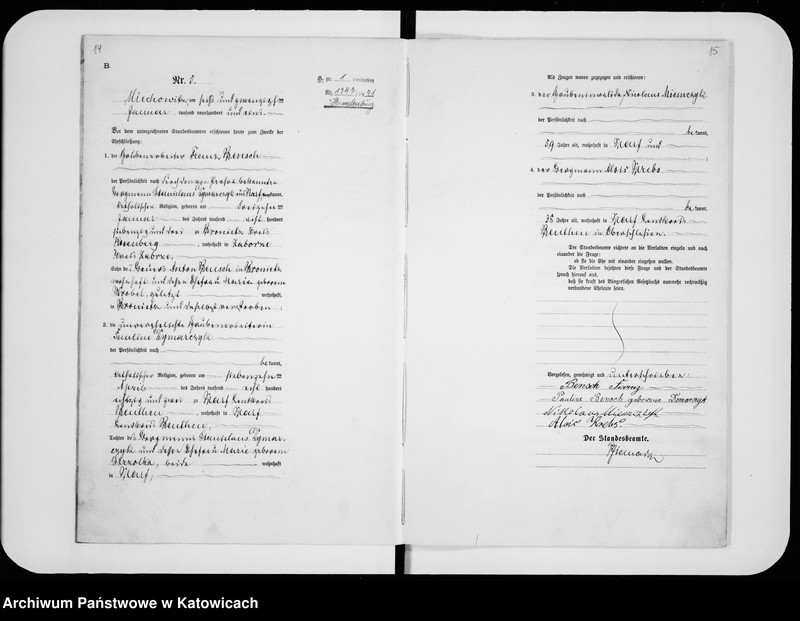 14
B.
Nr. 8.
Miechowitz, am sechs und zwanzigsten
Januar tausend neunhundert und drei.
Vor dem unterzeichneten Standesbeamten erschienen heute zum Zwecke der
Eheschließung:
1. der Grubenarbeiter Franz Bensch
der Persönlichkeit nach durch den
Bergmann Stanislaus Dymarczyk aus Karf kannt,
katholischer Religion, geboren am dreizehn
Januar des Jahres tausend acht hundert
siebenzig und drei zu Kreis
Rosenberg, wohnhaft in Zaborze
Kreis Zabrze,
Sohn des Anton Bensch in
wohnhaft und dessen Ehefrau Maria geborenen
zuletzt wohnhaft,
in und daselbst verstorben;
2. die unverehelichte Grubenarbeiterin
Pauline Dymarczyk
der Persönlichkeit nach
be kannt,
katholischer Religion, geboren am siebenzehn
April des Jahres tausend acht hundert
achtzig und zu Karf Landkreis
Beuthen, wohnhaft in Karf
Landkreis Beuthen,
Tochter des Bergmanns Stanislaus Dymar-
czyk und dessen Ehefrau Maria geborenen
beide wohnhaft
in Karf;
15
Als Zeugen waren zugezogen und erschienen:
3. der Grubeninvalide Nicolaus Mienczyk
der Persönlichkeit nach
be kannt,
59 Jahre alt, wohnhaft in Karf und
4. der Bergmann Alois Krebs
der Persönlichkeit nach
be kannt,
35 Jahre alt, wohnhaft in Karf Landkreis
Beuthen in Oberschlesien.
Der Standesbeamte richtete an die Verlobten einzeln und nach
einander die Frage:
ob sie die Ehe mit einander eingehen wollen.
Die Verlobten bejahten diese Frage und der Standesbeamte
sprach hierauf aus,
daß sie kraft des Bürgerlichen Gesetzbuchs nunmehr rechtmäßig
verbundene Eheleute seien.
Vorgelesen, genehmigt und unterschrieben:
Bensch Franz
Pauline Bensch geborene Dymarczyk
Alois Krebs
Der Standesbeamte.
Archiwum Państwowe w Katowicach